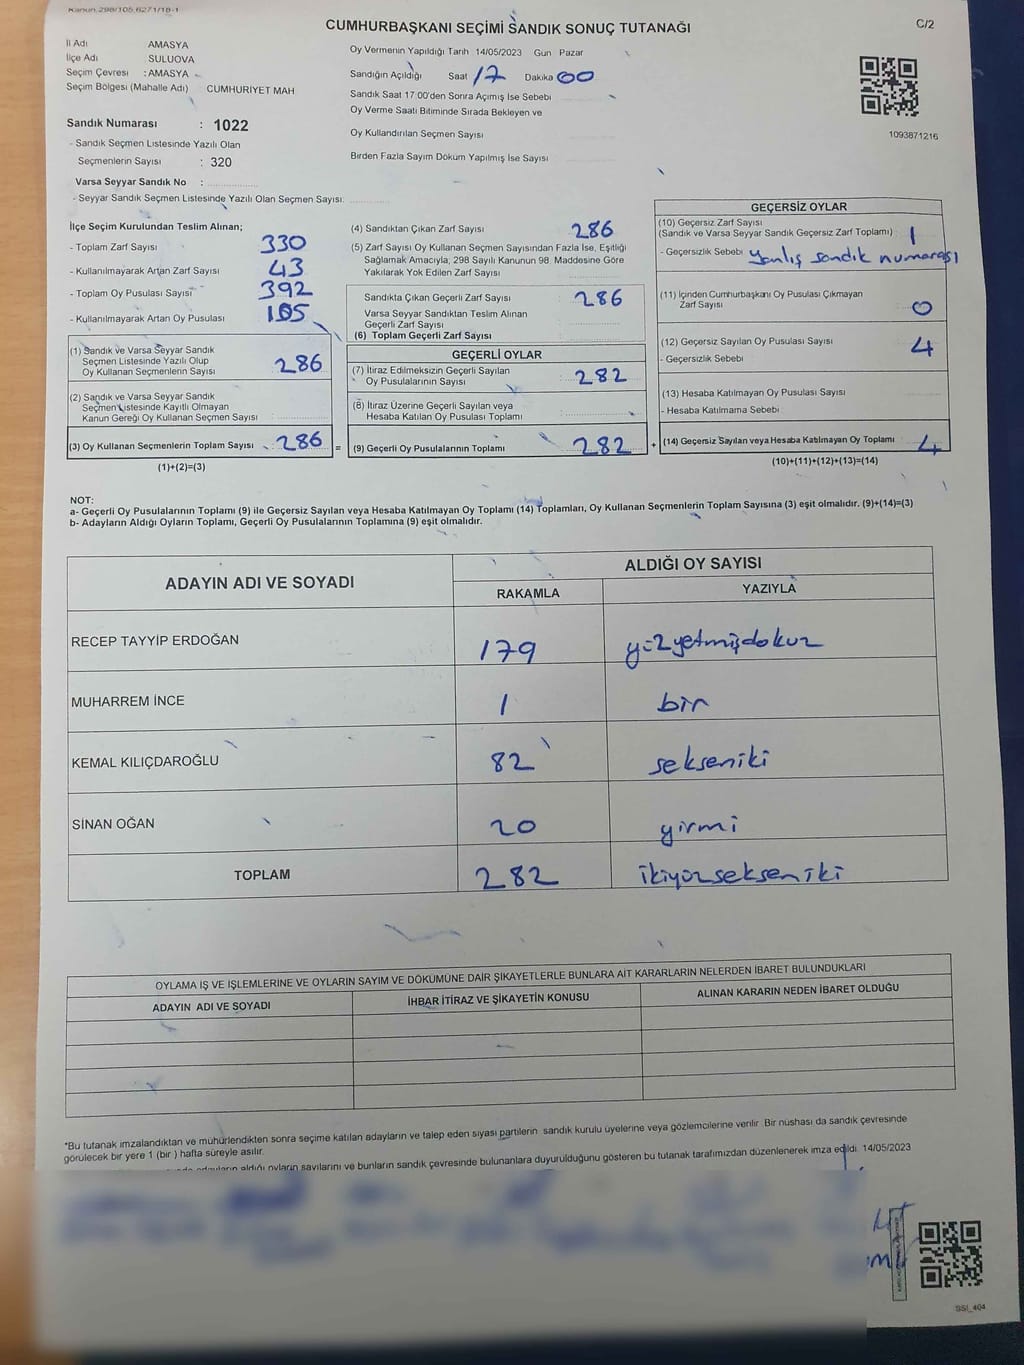 Kanun.298/105,6271/18-1
CUMHURBAŞKANI SEÇİMİ SANDIK SONUÇ TUTANAĞI
C/2
İl Adı AMASYA
İlçe Adı SULUOVA
Seçim Çevresi : AMASYA
Seçim Bölgesi (Mahalle Adı) CUMHURİYET MAH
Sandık Numarası : 1022
- Sandık Seçmen Listesinde Yazılı Olan
Seçmenlerin Sayısı : 320
Varsa Seyyar Sandık No :
- Seyyar Sandık Seçmen Listesinde Yazılı Olan Seçmen Sayısı:
Oy Vermenin Yapıldığı Tarih 14/05/2023 Gün Pazar
Sandığın Açıldığı Saat 17 Dakika 00
Sandık Saat 17:00'den Sonra Açımış İse Sebebi
Oy Verme Saati Bitiminde Sırada Bekleyen ve
Oy Kullandırılan Seçmen Sayısı
Birden Fazla Sayım Döküm Yapılmış İse Sayısı
1093871216
İlçe Seçim Kurulundan Teslim Alınan;
- Toplam Zarf Sayısı 330
- Kullanılmayarak Artan Zarf Sayısı 43
- Toplam Oy Pusulası Sayısı 392
- Kullanılmayarak Artan Oy Pusulası 105
(1) Sandık ve Varsa Seyyar Sandık
Seçmen Listesinde Yazılı Olup
Oy Kullanan Seçmenlerin Sayısı 286
(2) Sandık ve Varsa Seyyar Sandık
Seçmen Listesinde Kayıtlı Olmayan
Kanun Gereği Oy Kullanan Seçmen Sayısı
(3) Oy Kullanan Seçmenlerin Toplam Sayısı 286 =
(1)+(2)=(3)
(4) Sandıktan Çıkan Zarf Sayısı 286
(5) Zarf Sayısı Oy Kullanan Seçmen Sayısından Fazla İse, Eşitliği
Sağlamak Amacıyla, 298 Sayılı Kanunun 98. Maddesine Göre
Yakılarak Yok Edilen Zarf Sayısı
Sandıkta Çıkan Geçerli Zarf Sayısı 286
Varsa Seyyar Sandıktan Teslim Alınan
Geçerli Zarf Sayısı
(6) Toplam Geçerli Zarf Sayısı
GEÇERLİ OYLAR
(7) İtiraz Edilmeksizin Geçerli Sayılan
Oy Pusulalarının Sayısı 282
(8) İtiraz Üzerine Geçerli Sayılan veya
Hesaba Katılan Oy Pusulası Toplamı
(9) Geçerli Oy Pusulalarının Toplamı 282 +
GEÇERSİZ OYLAR
(10) Geçersiz Zarf Sayısı
(Sandık ve Varsa Seyyar Sandık Geçersiz Zarf Toplamı) 1
- Geçersizlik Sebebi yanlış sandık numarası
(11) İçinden Cumhurbaşkanı Oy Pusulası Çıkmayan
Zarf Sayısı 0
(12) Geçersiz Sayılan Oy Pusulası Sayısı 4
- Geçersizlik Sebebi
(13) Hesaba Katılmayan Oy Pusulası Sayısı
- Hesaba Katılmama Sebebi
(14) Geçersiz Sayılan veya Hesaba Katılmayan Oy Toplamı 4
(10)+(11)+(12)+(13)=(14)
NOT:
a- Geçerli Oy Pusulalarının Toplamı (9) ile Geçersiz Sayılan veya Hesaba Katılmayan Oy Toplamı (14) Toplamları, Oy Kullanan Seçmenlerin Toplam Sayısına (3) eşit olmalıdır. (9)+(14)=(3)
b- Adayların Aldığı Oyların Toplamı, Geçerli Oy Pusulalarının Toplamına (9) eşit olmalıdır.
ADAYIN ADI VE SOYADI
ALDIĞI OY SAYISI
RAKAMLA YAZIYLA
RECEP TAYYİP ERDOĞAN 179 yüzyetmişdokuz
MUHARREM İNCE 1 bir
KEMAL KILIÇDAROĞLU 82 sekseniki
SİNAN OĞAN 20 yirmi
TOPLAM 282 ikiyüzsekseniki
OYLAMA İŞ VE İŞLEMLERİNE VE OYLARIN SAYIM VE DÖKÜMÜNE DAİR ŞİKAYETLERLE BUNLARA AİT KARARLARIN NELERDEN İBARET BULUNDUKLARI
ADAYIN ADI VE SOYADI İHBAR İTİRAZ VE ŞİKAYETİN KONUSU ALINAN KARARIN NEDEN İBARET OLDUĞU
*Bu tutanak imzalandıktan ve mühürlendikten sonra seçime katılan adayların ve talep eden siyasi partilerin sandık kurulu üyelerine veya gözlemcilerine verilir. Bir nüshası da sandık çevresinde
görülecek bir yere 1 (bir ) hafta süreyle asılır.
adayların aldığı oyların sayılarını ve bunların sandık çevresinde bulunanlara duyurulduğunu gösteren bu tutanak tarafımızdan düzenlenerek imza edildi. 14/05/2023
SSİ_404